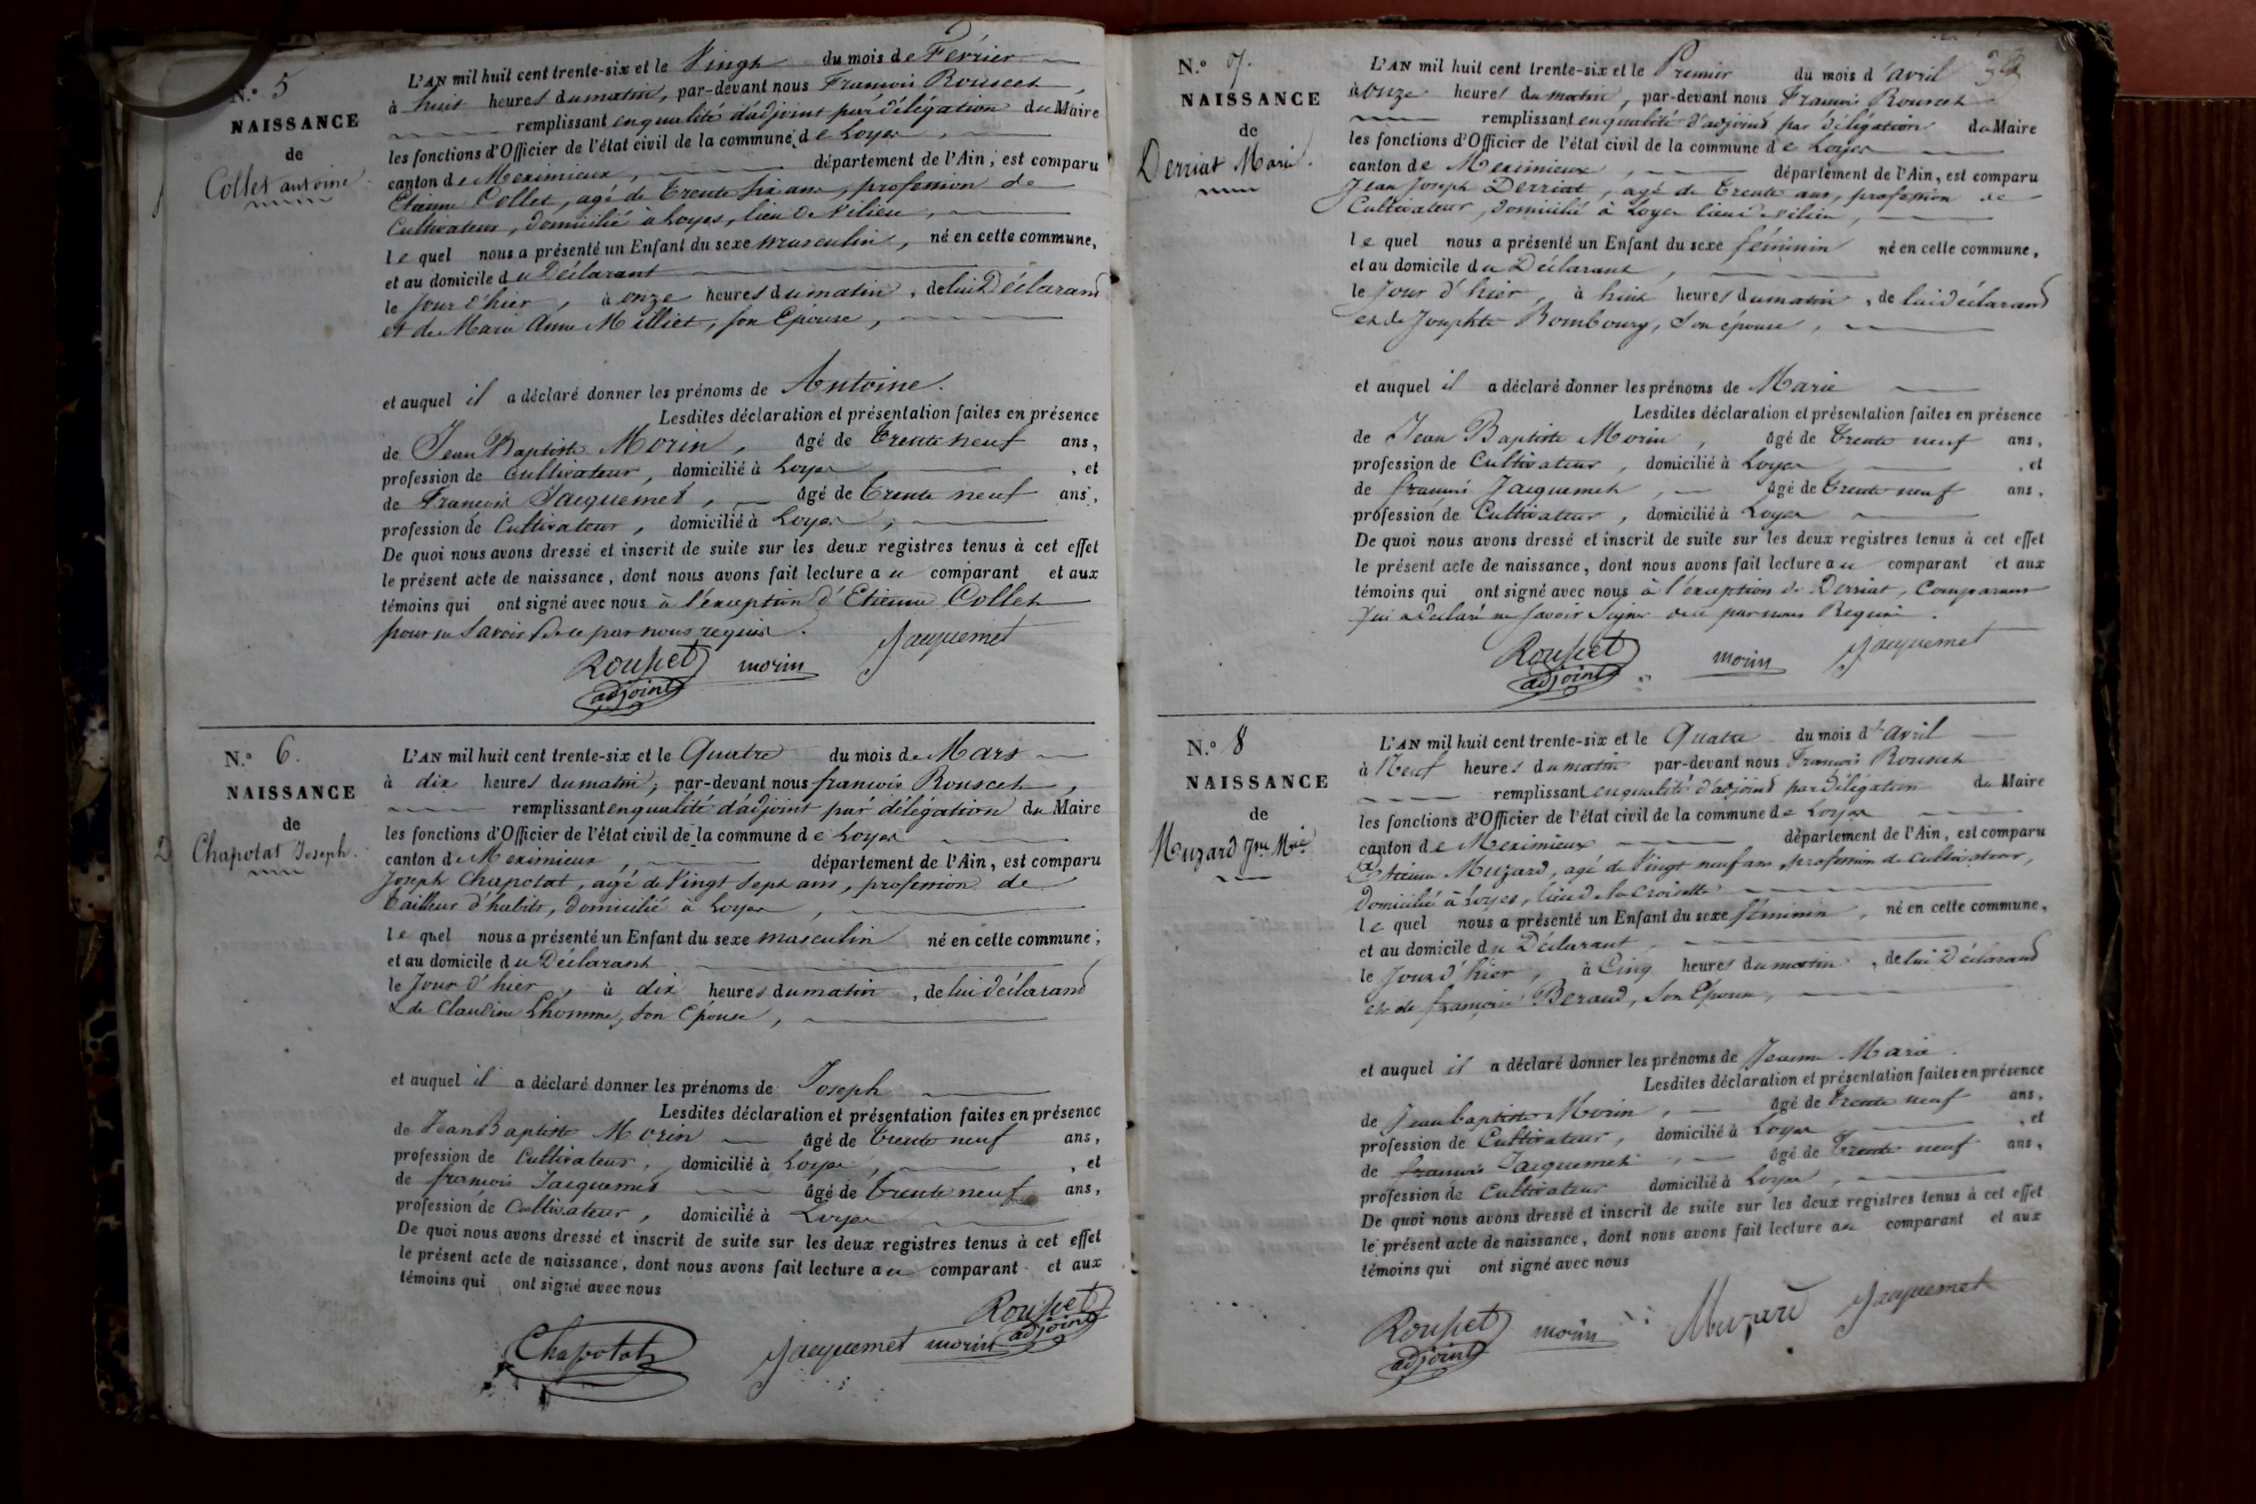 N.º 5
NAISSANCE
de
Collet antoine.
L'AN mil huit cent trente-six et le Vingt du mois de Février
à huit heures du matin, par-devant nous François Rousset,
remplissant en qualité d'adjoint par délégation du Maire
les fonctions d'Officier de l'état civil de la commune de Loyes,
canton de Meximieux, département de l'Ain, est comparu
Etienne Collet, agé de trente six ans, profession de
Cultivateur, domicilié à Loyes, lieu de Vilieu,
lequel nous a présenté un Enfant du sexe masculin, né en cette commune,
et au domicile du Déclarant
le jour d'hier, à onze heures du matin, de lui Déclarant
et de Marie Anne Milliet, son Epouse,
et auquel il a déclaré donner les prénoms de Antoine.
Lesdites déclaration et présentation faites en présence
de Jean Baptiste Morin, âgé de trente neuf ans,
profession de cultivateur, domicilié à Loyes, et
de François Jacquemet, âgé de trente neuf ans,
profession de Cultivateur, domicilié à Loyes,
De quoi nous avons dressé et inscrit de suite sur les deux registres tenus à cet effet
le présent acte de naissance, dont nous avons fait lecture au comparant et aux
témoins qui ont signé avec nous à l'exception d'Etienne Collet
pour ne savoir de ce par nous requis.
Rousset adjoint morin Jacquemet
N.º 6.
NAISSANCE
de
Chapotat Joseph.
L'AN mil huit cent trente-six et le Quatre du mois de Mars
à dix heures du matin, par-devant nous françois Rousset,
remplissant en qualité d'adjoint par délégation du Maire
les fonctions d'Officier de l'état civil de la commune de Loyes
canton de Meximieux, département de l'Ain, est comparu
Joseph Chapotat, agé de Vingt sept ans, profession de
tailleur d'habits, domicilié à Loyes,
lequel nous a présenté un Enfant du sexe masculin né en cette commune,
et au domicile du Déclarant
le Jour d'hier, à dix heures du matin, de lui déclarant
& de Claudine Lhomme, son Epouse,
et auquel il a déclaré donner les prénoms de Joseph
Lesdites déclaration et présentation faites en présence
de Jean Baptiste Morin âgé de trente neuf ans,
profession de Cultivateur, domicilié à Loyes, et
de françois Jacquemet âgé de trente neuf ans,
profession de Cultivateur, domicilié à Loyes
De quoi nous avons dressé et inscrit de suite sur les deux registres tenus à cet effet
le présent acte de naissance, dont nous avons fait lecture au comparant et aux
témoins qui ont signé avec nous
Chapotat Jacquemet morin Rousset adjoint
N.º 7.
NAISSANCE
de
Derriat Marie.
L'AN mil huit cent trente-six et le Premier du mois d'avril
à onze heures du matin, par-devant nous François Rousset
remplissant en qualité d'adjoint par délégation du Maire
les fonctions d'Officier de l'état civil de la commune de Loyes
canton de Meximieux, département de l'Ain, est comparu
Jean Joseph Derriat, agé de trente ans, profession de
Cultivateur, domicilié à Loyes lieu de Vilieu,
lequel nous a présenté un Enfant du sexe féminin né en cette commune,
et au domicile du Déclarant,
le Jour d'hier, à huit heures du matin, de lui déclarant
et de Josephte Bombourg, son épouse,
et auquel il a déclaré donner les prénoms de Marie
Lesdites déclaration et présentation faites en présence
de Jean Baptiste Morin, âgé de trente neuf ans,
profession de Cultivateur, domicilié à Loyes, et
de françois Jacquemet, âgé de trente neuf ans,
profession de Cultivateur, domicilié à Loyes
De quoi nous avons dressé et inscrit de suite sur les deux registres tenus à cet effet
le présent acte de naissance, dont nous avons fait lecture au comparant et aux
témoins qui ont signé avec nous à l'exception de Derriat, Comparant
qui a Déclaré ne savoir signer de ce par nous Requis.
Rousset adjoint morin Jacquemet
N.º 8
NAISSANCE
de
Muzard Jne Mie
L'AN mil huit cent trente-six et le Quatre du mois d'avril
à Neuf heures du matin par-devant nous François Rousset
remplissant en qualité d'adjoint par délégation du Maire
les fonctions d'Officier de l'état civil de la commune de Loyes
canton de Meximieux département de l'Ain, est comparu
Etienne Muzard, agé de Vingt neuf ans, profession de cultivateur,
Domicilié à Loyes, lieu de la croisette
lequel nous a présenté un Enfant du sexe féminin, né en cette commune,
et au domicile du Déclarant,
le Jour d'hier, à Cinq heures du matin, de lui Déclarant
et de françoise Beraud, son Epouse,
et auquel il a déclaré donner les prénoms de Jeanne Marie.
Lesdites déclaration et présentation faites en présence
de Jean baptiste Morin, âgé de trente neuf ans,
profession de Cultivateur, domicilié à Loyes, et
de françois Jacquemet, âgé de trente neuf ans,
profession de Cultivateur domicilié à Loyes,
De quoi nous avons dressé et inscrit de suite sur les deux registres tenus à cet effet
le présent acte de naissance, dont nous avons fait lecture au comparant et aux
témoins qui ont signé avec nous
Rousset adjoint morin Muzard Jacquemet